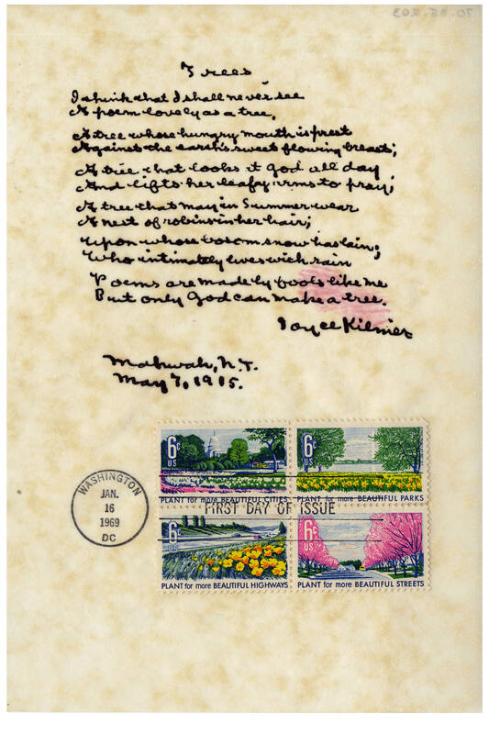 70.25.203
Trees
I think that I shall never see
A poem lovely as a tree.
A tree whose hungry mouth is prest
Against the earth's sweet flowing breast;
A tree that looks at God all day
And lifts her leafy arms to pray;
A tree that may in Summer wear
A nest of robins in her hair;
Upon whose bosom snow has lain;
Who intimately lives with rain
Poems are made by fools like me
But only God can make a tree.
Joyce Kilmer
Mahwah, N.J.
May 7, 1915.
WASHINGTON
JAN.
16
1969
DC
6¢
US
PLANT for more BEAUTIFUL CITIES
6¢
US
PLANT for more BEAUTIFUL PARKS
FIRST DAY OF ISSUE
6¢
US
PLANT for more BEAUTIFUL HIGHWAYS
6¢
US
PLANT for more BEAUTIFUL STREETS